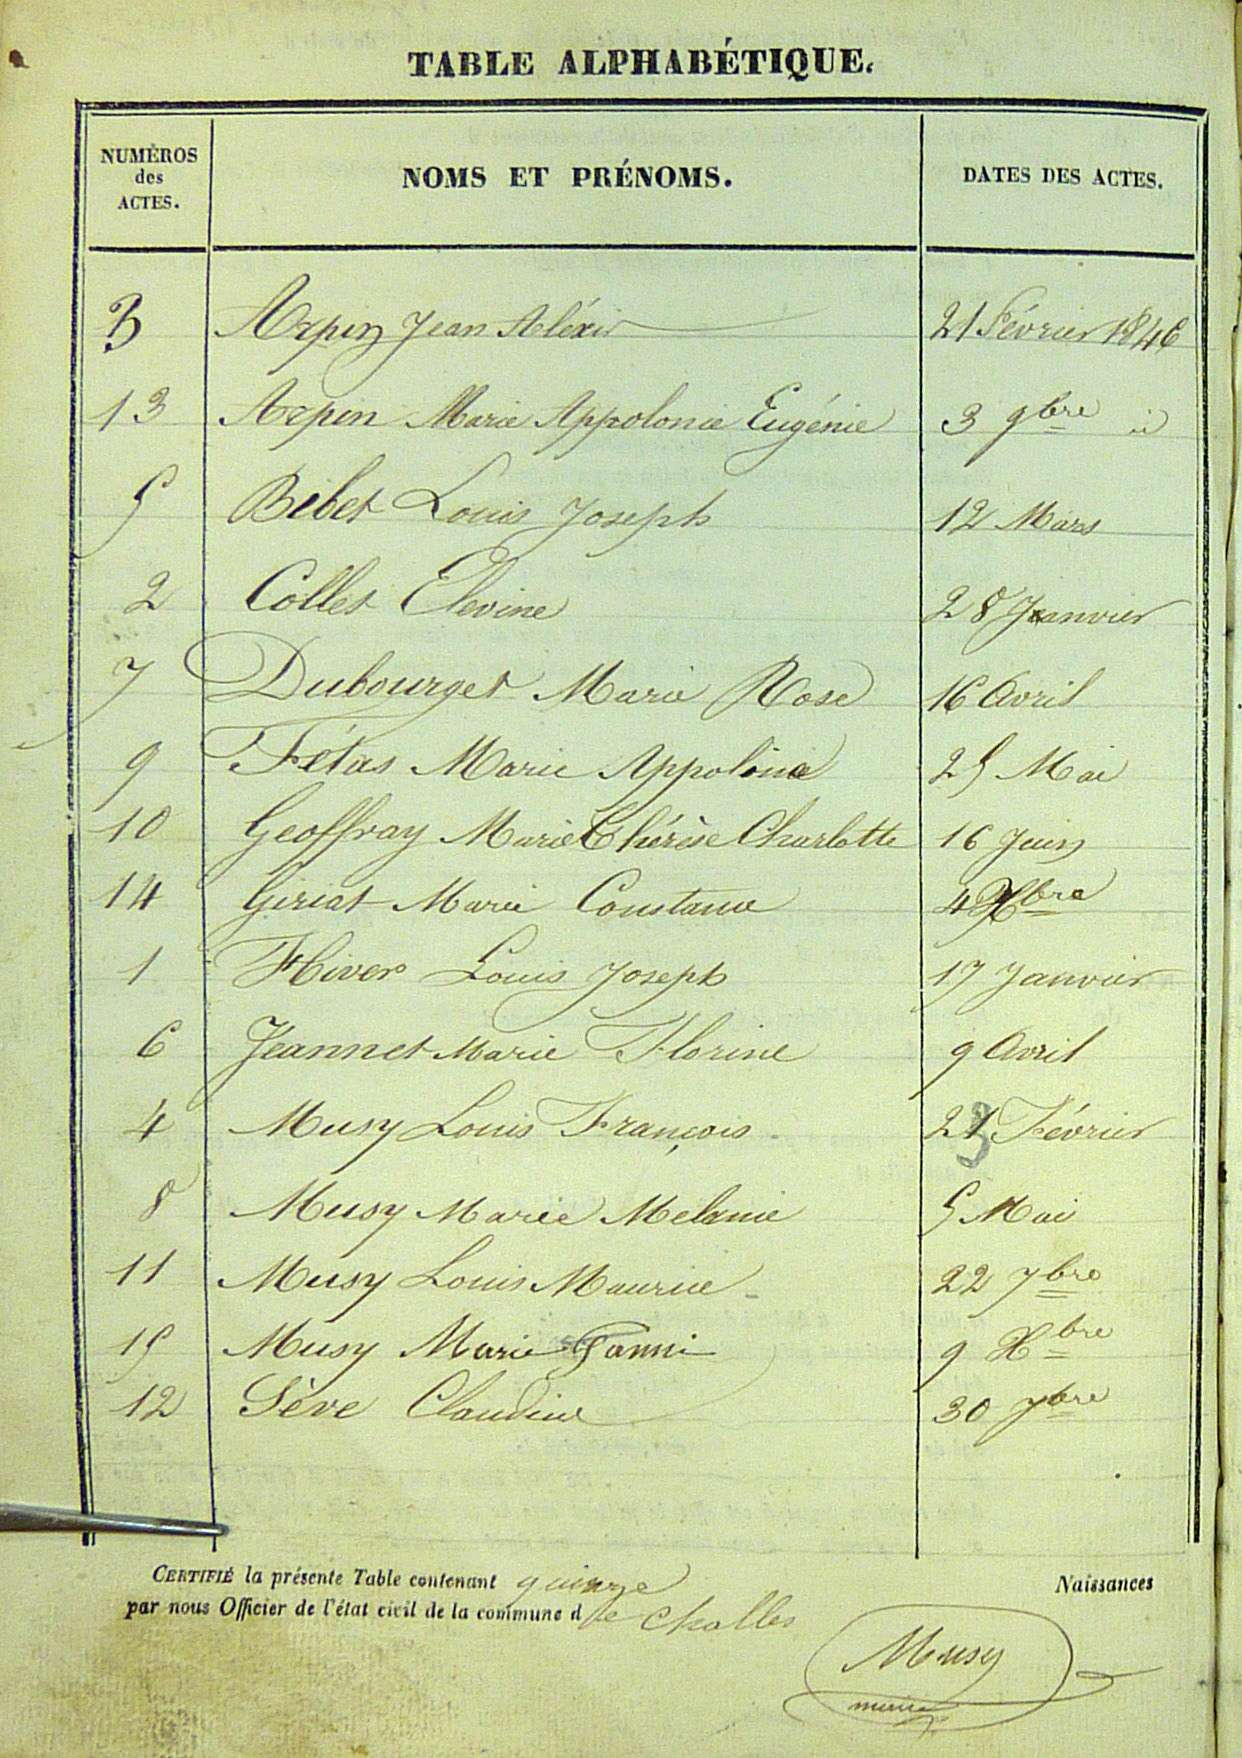 TABLE ALPHABÉTIQUE.
NUMÉROS des ACTES. NOMS ET PRÉNOMS. DATES DES ACTES.
3 Arpin Jean Aléxis 21 Février 1846
13 Arpin Marie Appolonie Eugénie 3 9bre id
5 Bebet Louis Joseph 12 Mars
2 Collet Elevine 28 Janvier
7 Dubourget Marie Rose 16 Avril
9 Fétas Marie Appolinie 25 Mai
10 Geoffray Marie Thérèse Charlotte 16 Juin
14 Giriat Marie Constance 4 Xbre
1 Hiver Louis Joseph 17 Janvier
6 Jeannet Marie Florine 9 Avril
4 Musy Louis François 23 Février
8 Musy Marie Melanie 5 Mai
11 Musy Louis Maurice 22 7bre
15 Musy Marie Fanni 9 Xbre
12 Sève Claudine 30 7bre
CERTIFIÉ la présente Table contenant quinze Naissances
par nous Officier de l'état civil de la commune de Challes
Musy
maire